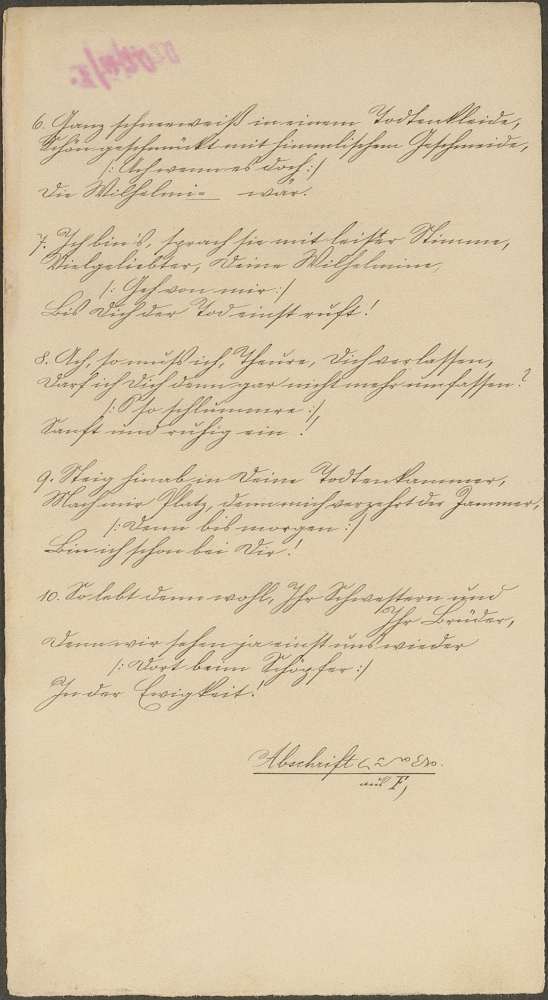 6. Ganz schneeweiß in einem Todtenkleide,
Schön geschmückt mit himmlischem Geschmeide,
/: Ach wenn es doch :/
Die Wilhelmi= wär.
7. Ich bin's, sprach sie mit leiser Stimme,
Vielgeliebter, Deine Wilhelmine,
/: Geh von mir :/
Bis Dich der Tod einst ruft!
8. Ach, so muß ich, Theure, Dich verlassen,
Darf ich Dich denn gar nicht mehr umfassen?
/: O so schlummere :/
Sanft und ruhig ein!
9. Steig hinab in Deine Todtenkammer,
Mach mir Platz, denn mich verzehrt der Jammer,
/: Denn bis morgen :/
Bin ich schon bei Dir!
10. So lebt denn wohl, Ihr Schwestern und
Ihr Brüder,
Denn wir sehen ja einst uns wieder
/: Dort beim Schöpfer :/
In der Ewigkeit!
Abschrift
aus F,